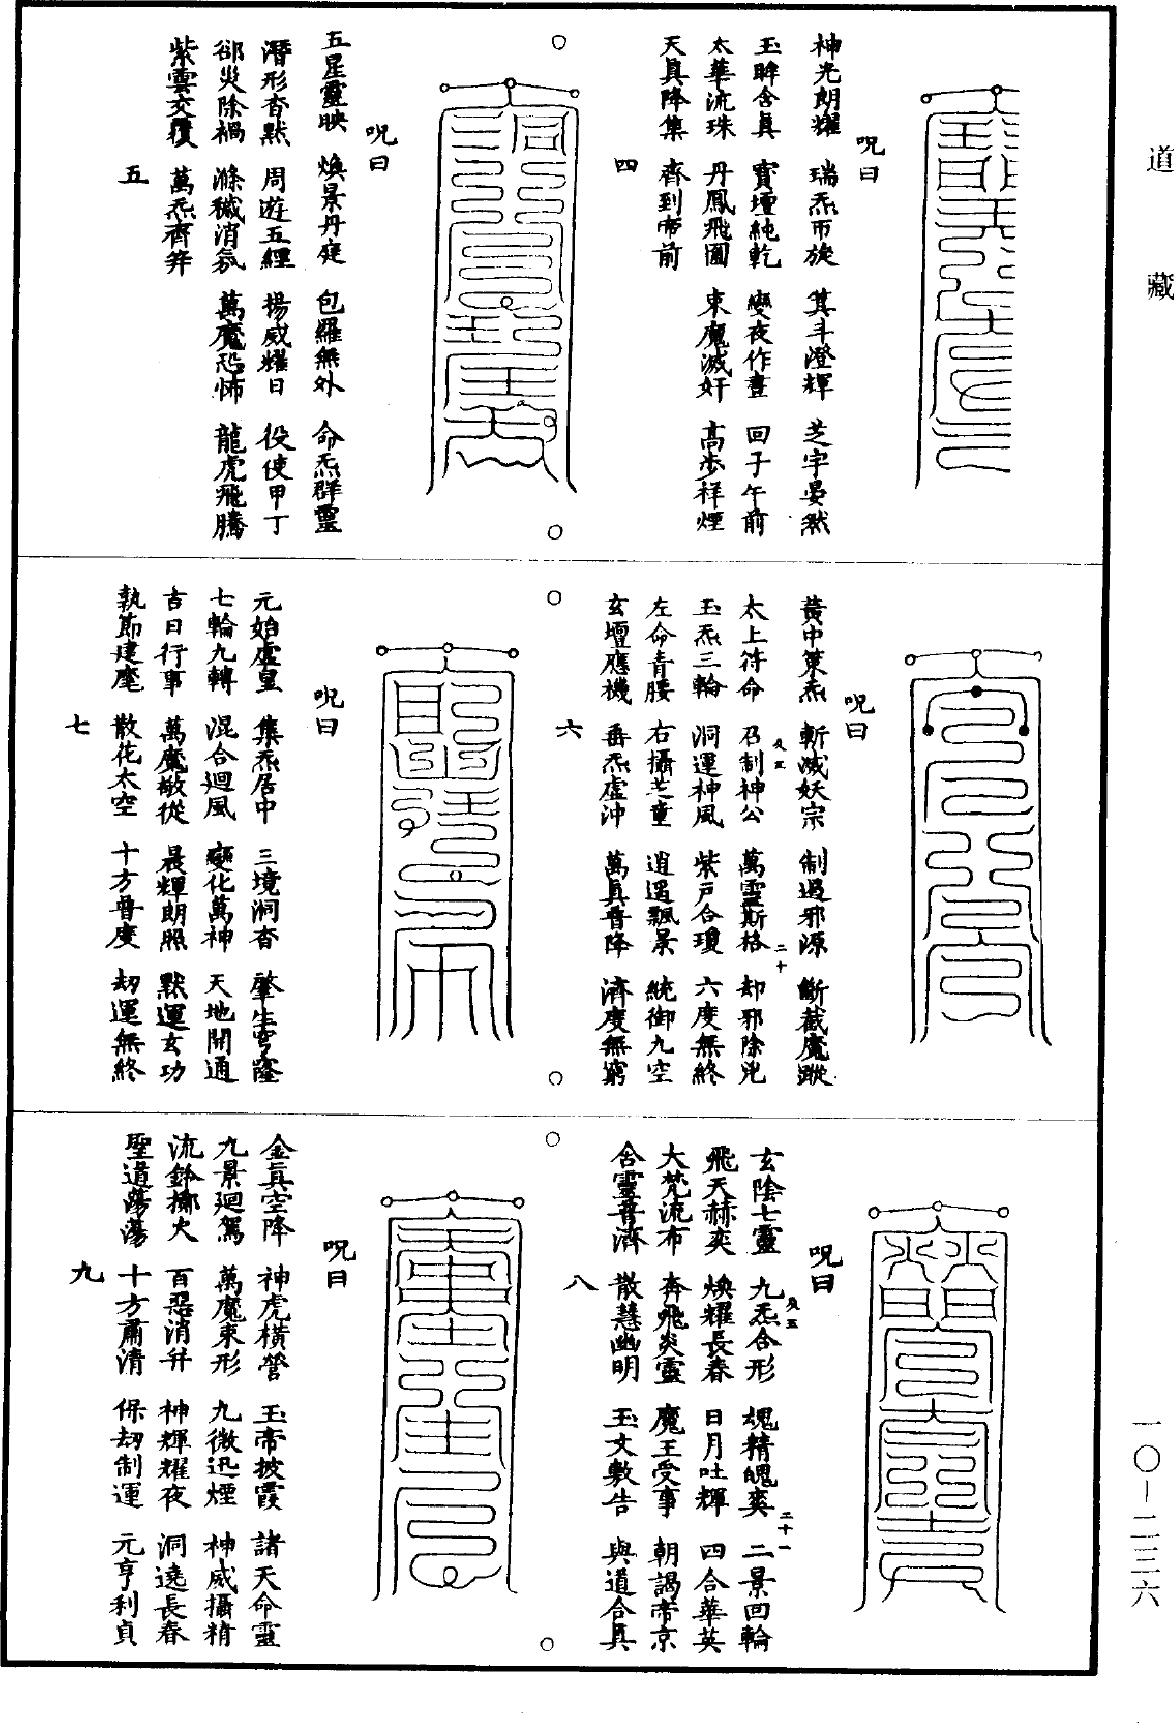 道藏
一〇—二三六
呪曰
神光朗耀 瑞炁帀旋 箕斗澄輝 芝宇晏然
玉眸含真 寶壇純乾 變夜作晝 回子午前
太華流珠 丹鳳飛圓 束魔滅奸 高步祥煙
天真降集 齊到帝前
四
呪曰
五星靈映 煥景丹庭 包羅無外 命炁群靈
潛形杳默 周遊五經 揚威耀日 役使甲丁
卻災除禍 滌穢消氛 萬魔恐怖 龍虎飛騰
紫雲交覆 萬炁齊并
五
呪曰
黃中策炁 斬滅妖宗 制遏邪源 斷截魔蹤
太上符命 召制神公 萬靈斯格 却邪除兇
及五 二十
玉炁三輪 洞運神風 紫戶合瓊 六度無終
左命青腰 右攝芝童 逍遙飄景 統御九空
玄壇應機 垂炁虛沖 萬真普降 濟度無窮
六
呪曰
元始虛皇 集炁居中 三境洞杳 肇生穹窿
七輪九轉 混合迴風 變化萬神 天地開通
吉日行事 萬魔敬從 晨輝朗照 默運玄功
執節建麾 散花太空 十方普度 劫運無終
七
呪曰
玄陰七靈 九炁合形 魂精魄爽 二景回輪
及五 二十一
飛天赫奕 煥耀長春 日月吐輝 四合華英
大梵流布 奔飛炎靈 魔王受事 朝謁帝京
含靈普濟 散慧幽明 玉文敷告 與道合真
八
呪曰
金真空降 神虎橫營 玉帝披霞 諸天命靈
九景迴駕 萬魔束形 九微迅煙 神威攝精
流鈴擲火 百惡消并 神輝耀夜 洞遶長春
聖道蕩蕩 十方肅清 保劫制運 元亨利貞
九